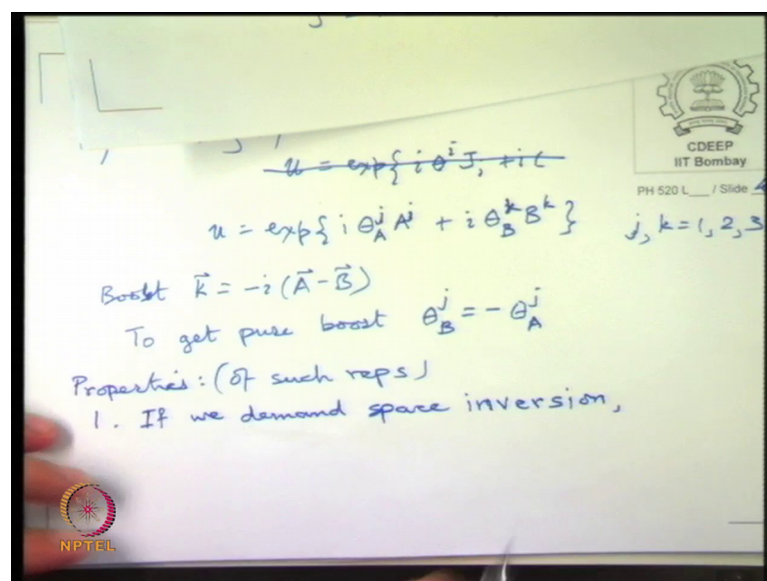 CDEEP
IIT Bombay
PH 520 L___ / Slide
u = exp{ i θ^i J_i + i (
u = exp{ i θ_A^j A^j + i θ_B^k B^k } j, k = 1, 2, 3
Boost K⃗ = -i (A⃗ - B⃗)
To get pure boost θ_B^j = - θ_A^j
Properties: (of such reps)
1. If we demand space inversion,
NPTEL